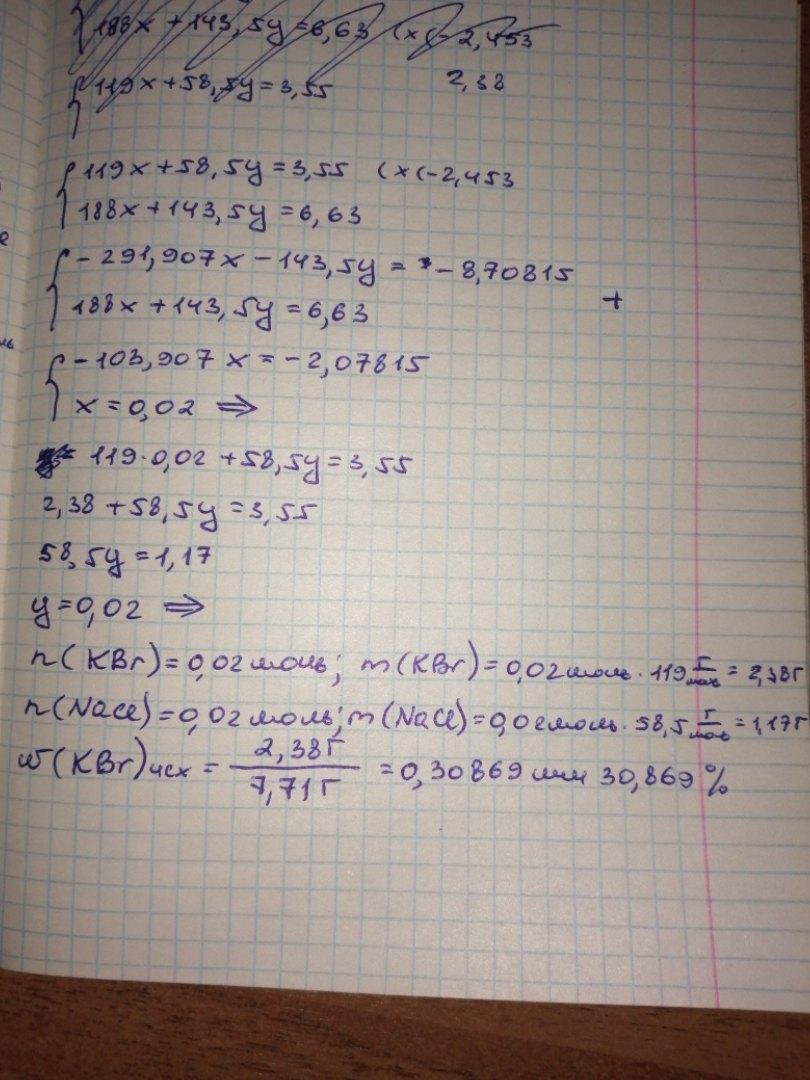 188x + 143,5y = 6,63 (x(-2,453
119x + 58,5y = 3,55 2,38
119x + 58,5y = 3,55 (x(-2,453
188x + 143,5y = 6,63
- 291,907x - 143,5y = - 8,70815
+
188x + 143,5y = 6,63
- 103,907x = - 2,07815
x = 0,02 ⇒
119·0,02 + 58,5y = 3,55
2,38 + 58,5y = 3,55
58,5y = 1,17
y = 0,02 ⇒
n(KBr) = 0,02 моль; m(KBr) = 0,02 моль · 119 г/моль = 2,38г
n(NaCl) = 0,02 моль; m(NaCl) = 0,02 моль · 58,5 г/моль = 1,17г
w(KBr)исх = 2,38г / 7,71г = 0,30869 или 30,869%